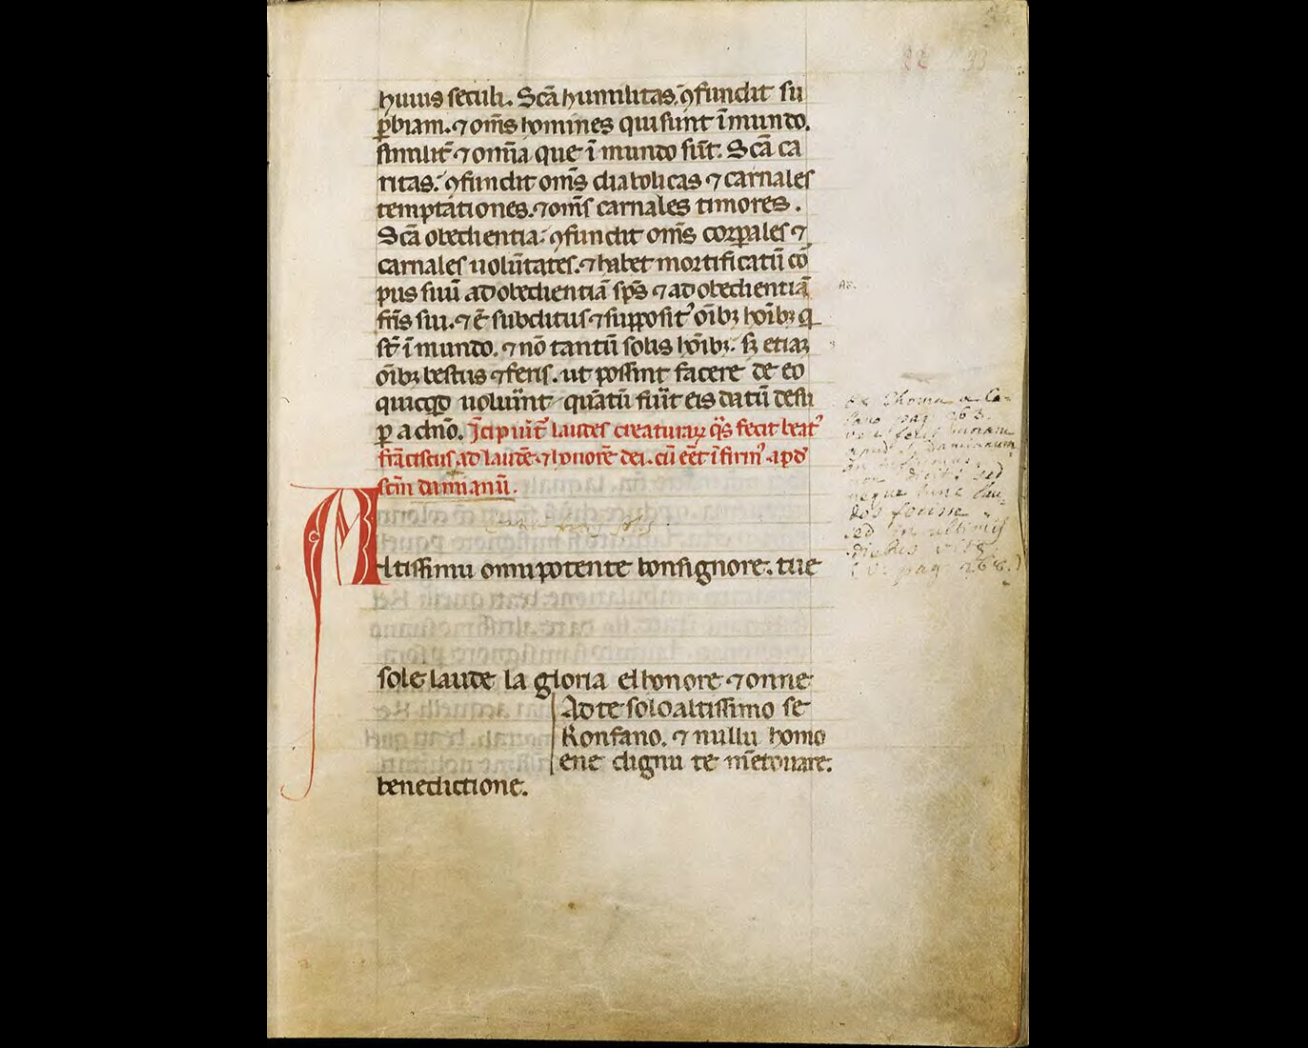 huius seculi. Scã humilitas. ꝯfundit su
ꝑbiam. ⁊ om̃s homines qui sunt ĩ mundo.
similit̃ ⁊ om̃ia que ĩ mundo sũt. Scã ca
ritas. ꝯfundit om̃s diabolicas ⁊ carnales
temptationes. ⁊ om̃s carnales timores.
Scã obedientia. ꝯfundit om̃s corꝑales ⁊
carnales uolũtates. ⁊ habet mortificatũ co
pus suũ ad obedientiã sp̃s ⁊ ad obedientiã
fr̃is sui. ⁊ ẽ subditus ⁊ supposit᾽ oĩbꝫ hoĩbꝫ q̃
st̃ ĩ mundo. ⁊ nõ tantũ solis hoĩbꝫ. sꝫ etiaꝫ
oĩbꝫ bestiis ⁊ feris. ut possint facere de eo
quicqd uoluĩnt quãtũ fũit eis datũ desu
ꝑ a dño. Ĩcipiũt laudes creaturaꝝ q̃s fecit beat᾽
frãciscus ad laudẽ ⁊ honorẽ dei. cũ eẽt ĩfirm᾽ apd
scm̃ damianũ.
Altissimu omnipotente bonsignore. tue
sole laude la gloria elhonore ⁊ onne
Ad te solo altissimo se
Konfano. ⁊ nullu homo
ene dignu te m̃etouare.
benedictione.
33
ex Thoma a Ce-
lano pag 263.
apud S. Damianum
non sed
neque hanc lau
dos fecisse
sed in ultimis
diebus
(V. pag. 268.)